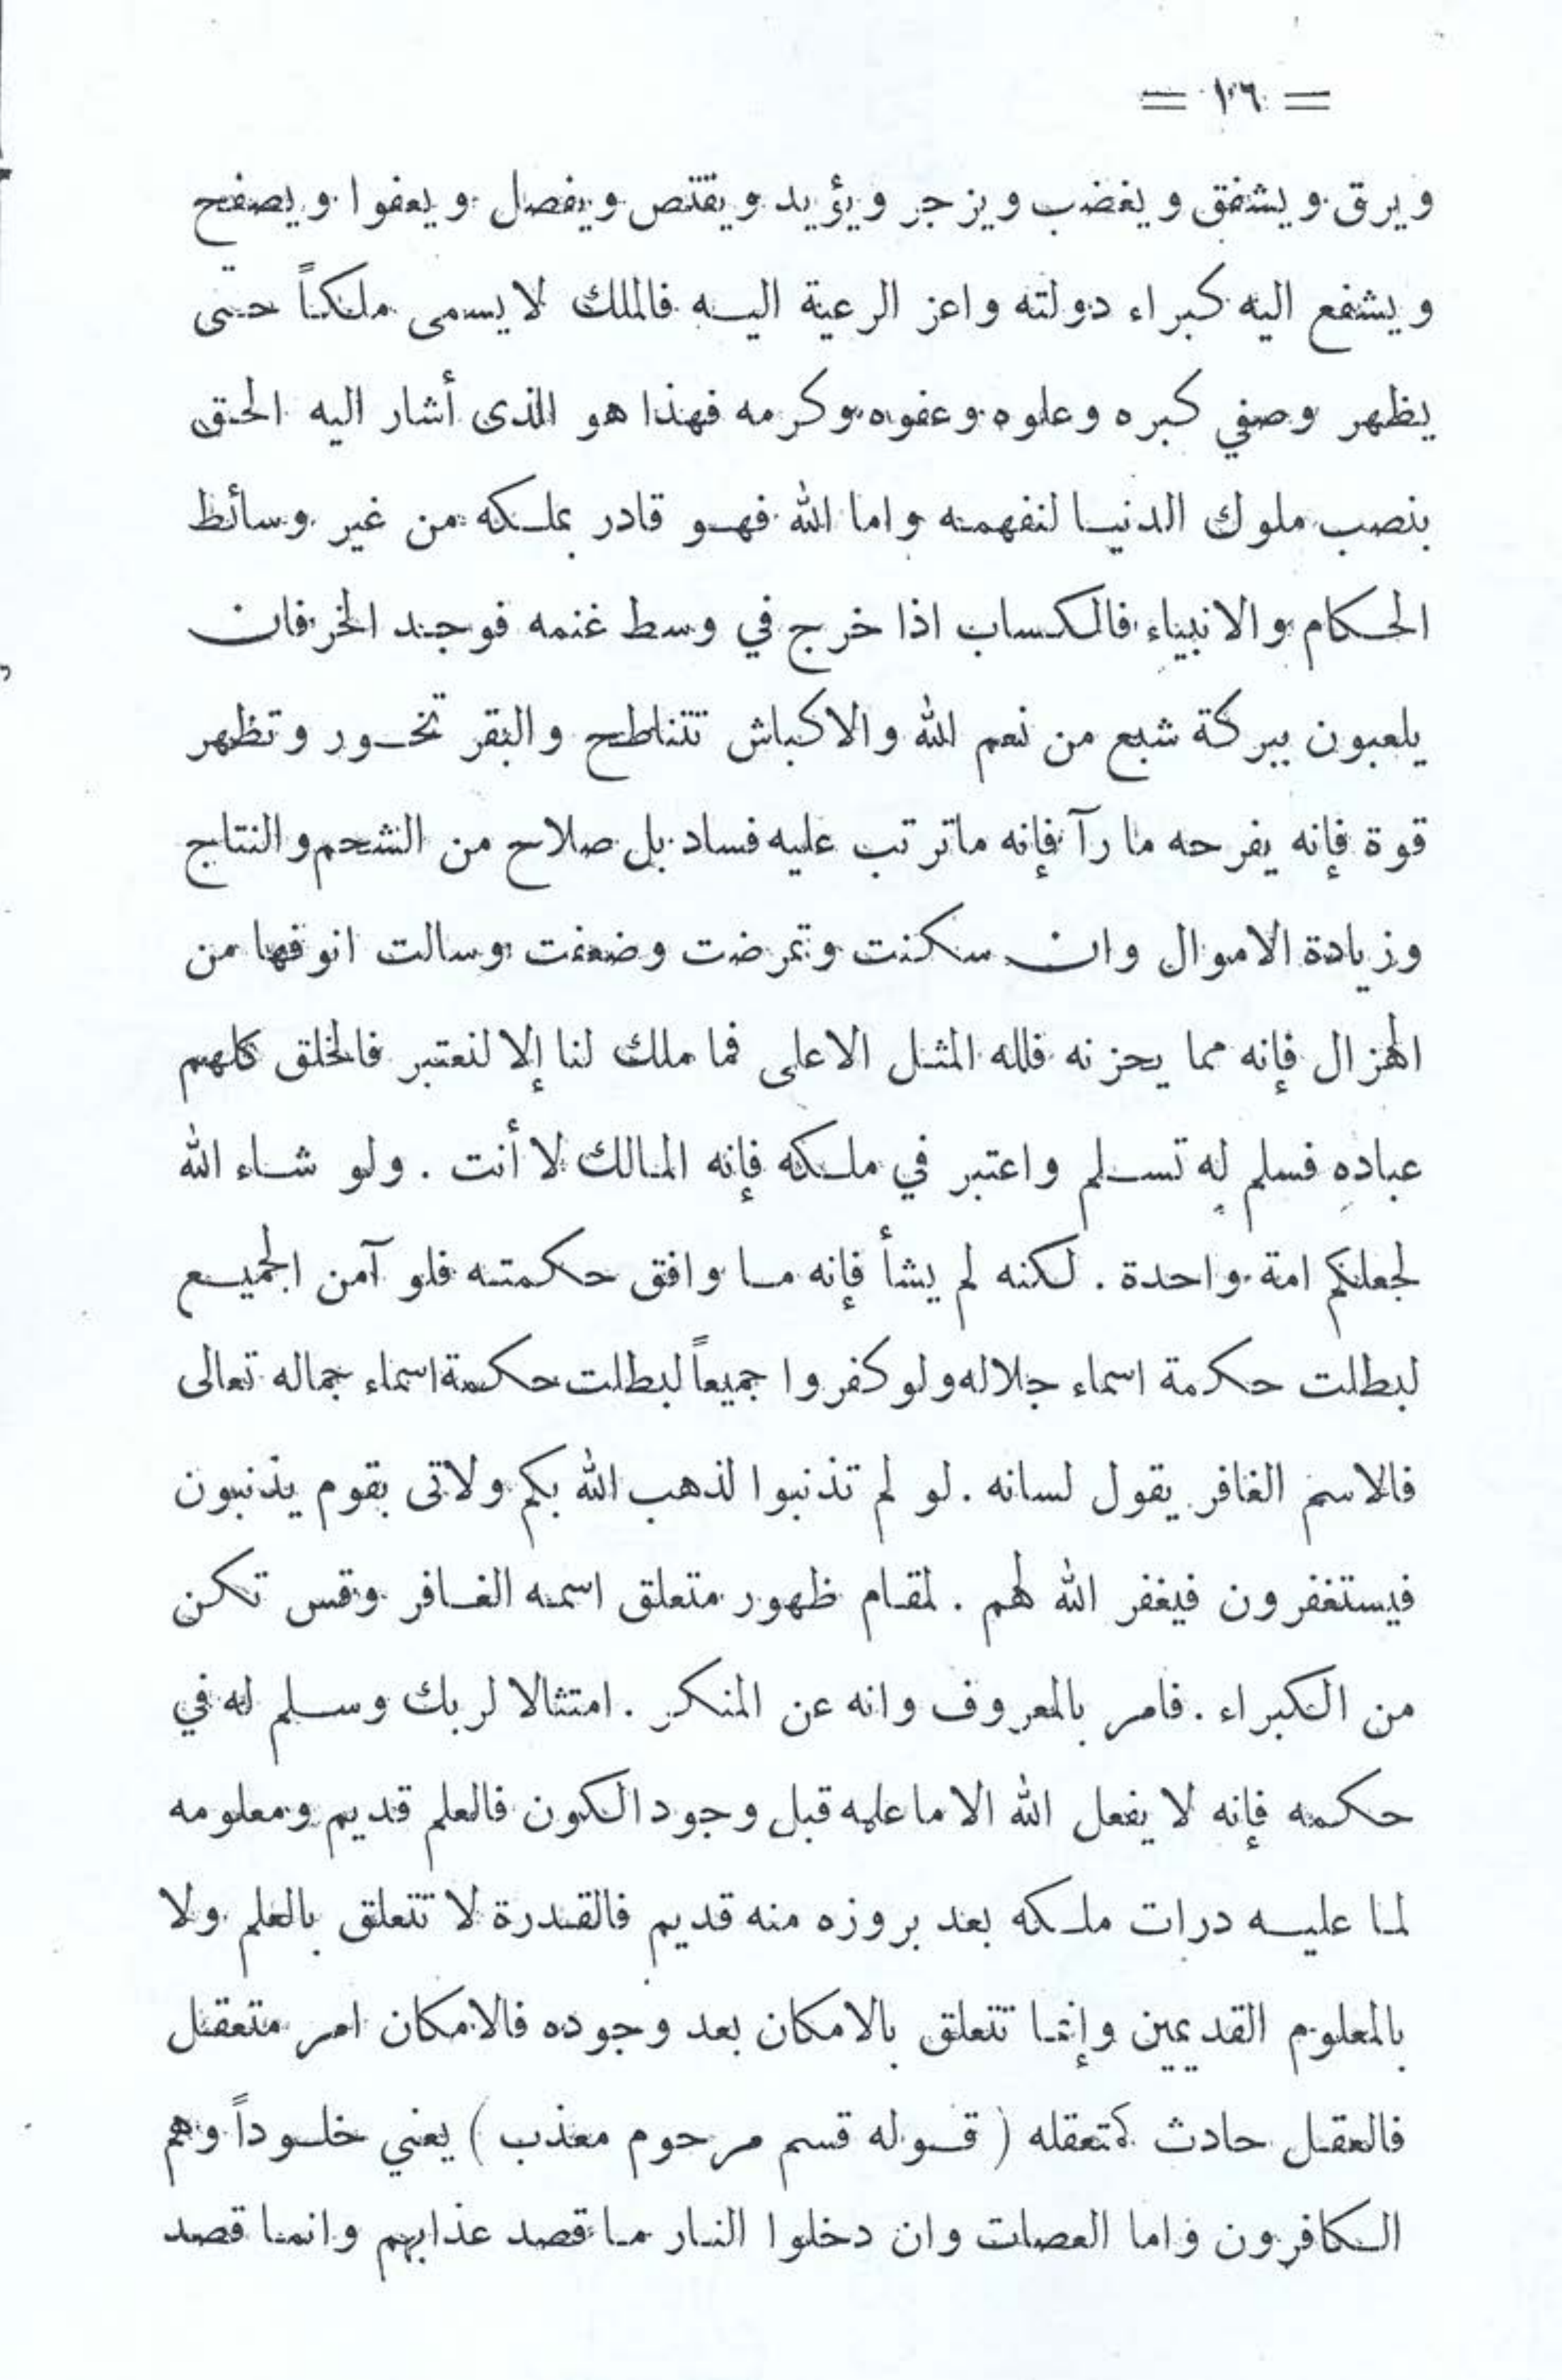 = ١٠٦ =
ويرق ويشفق ويغضب ويزجر ويؤيد ويقتص ويفصل ويعفوا ويصفح
ويشفع اليه كبراء دولته واعز الرعية اليه فالملك لا يسمى ملكاً حتى
يظهر وصفي كبره وعلوه وعفوه وكرمه فهذا هو الذى أشار اليه الحق
بنصب ملوك الدنيا لنفهمه واما الله فهو قادر بملكه من غير وسائط
الحكام والانبياء فالكساب اذا خرج في وسط غنمه فوجد الخرفان
يلعبون ببركة شبع من نعم الله والاكباش تتناطح والبقر تخور وتظهر
قوة فإنه يفرحه ما رآ فإنه ماترتب عليه فساد بل صلاح من الشحم والنتاج
وزيادة الاموال وان سكنت وتمرضت وضعفت وسالت انوفها من
الهزال فإنه مما يحزنه فلله المثل الاعلى فما ملك لنا إلا لنعتبر فالخلق كلهم
عباده فسلم له تسلم واعتبر في ملكه فإنه المالك لا أنت . ولو شاء الله
لجعلكم امة واحدة . لكنه لم يشأ فإنه ما وافق حكمته فلو آمن الجميع
لبطلت حكمة اسماء جلاله ولو كفروا جميعاً لبطلت حكمة اسماء جماله تعالى
فالاسم الغافر يقول لسانه . لو لم تذنبوا لذهب الله بكم ولاتى بقوم يذنبون
فيستغفرون فيغفر الله لهم . لمقام ظهور متعلق اسمه الغافر وقس تكن
من الكبراء . فامر بالمعروف وانه عن المنكر . امتثالا لربك وسلم له في
حكمه فإنه لا يفعل الله الا ما علمه قبل وجود الكون فالعلم قديم ومعلومه
لما عليه درات ملكه بعد بروزه منه قديم فالقدرة لا تتعلق بالعلم ولا
بالمعلوم القديمين وإنما تتعلق بالامكان بعد وجوده فالامكان امر متعقل
فالعقل حادث كمتعقله ( قوله قسم مرحوم معذب ) يعني خلوداً وهم
الكافرون واما العصات وان دخلوا النار ما قصد عذابهم وانما قصد